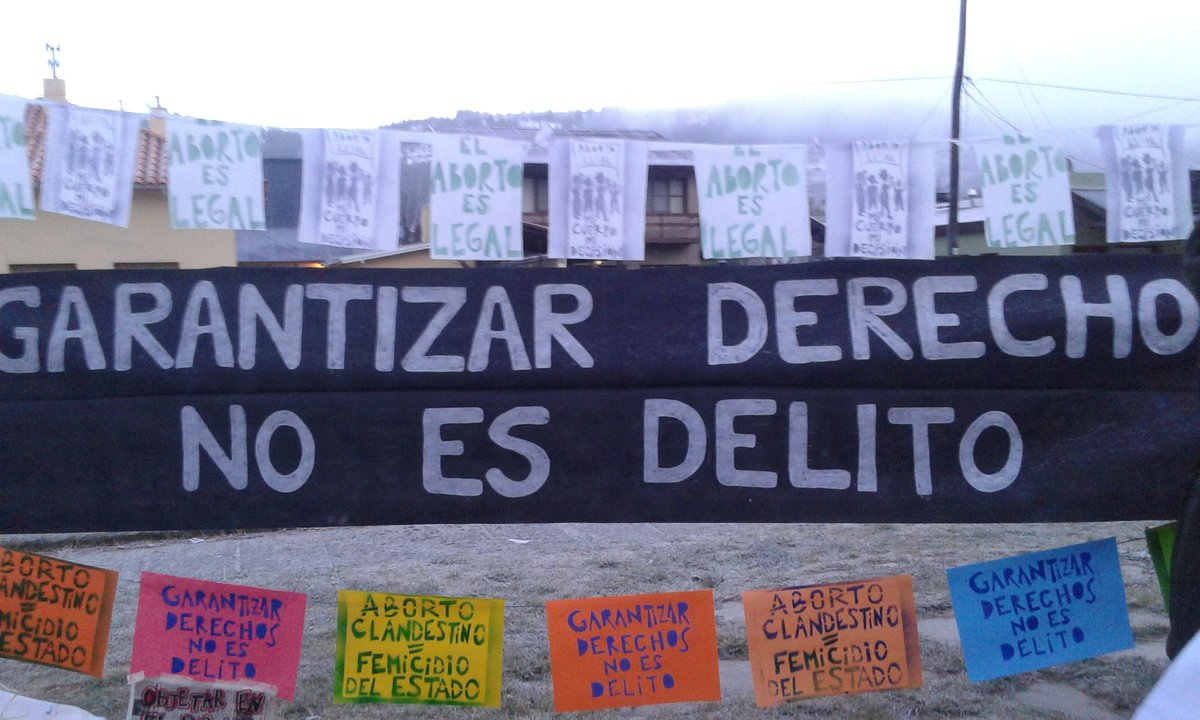 CUERPO
MI
DECISION!
ABORTO
ES
LEGAL
CUERPO
MI
DECISION!
EL
ABORTO
ES
LEGAL
CUERPO
MI
DECISION!
EL
ABORTO
ES
LEGAL
CUERPO
MI
DECISION!
EL
ABORTO
ES
LEGAL
CUERPO
MI
DECISION!
GARANTIZAR DERECHO
NO ES DELITO
BORTO
LANDESTINO
=
FEMICIDIO
EL ESTADO
GARANTIZAR
DERECHOS
NO ES
DELITO
ABORTO
CLANDESTINO
=
FEMICIDIO
DEL ESTADO
GARANTIZAR
DERECHOS
NO ES
DELITO
ABORTO
CLANDESTINO
=
FEMICIDIO
DEL ESTADO
GARANTIZAR
DERECHOS
NO ES
DELITO
OBJETAR EN